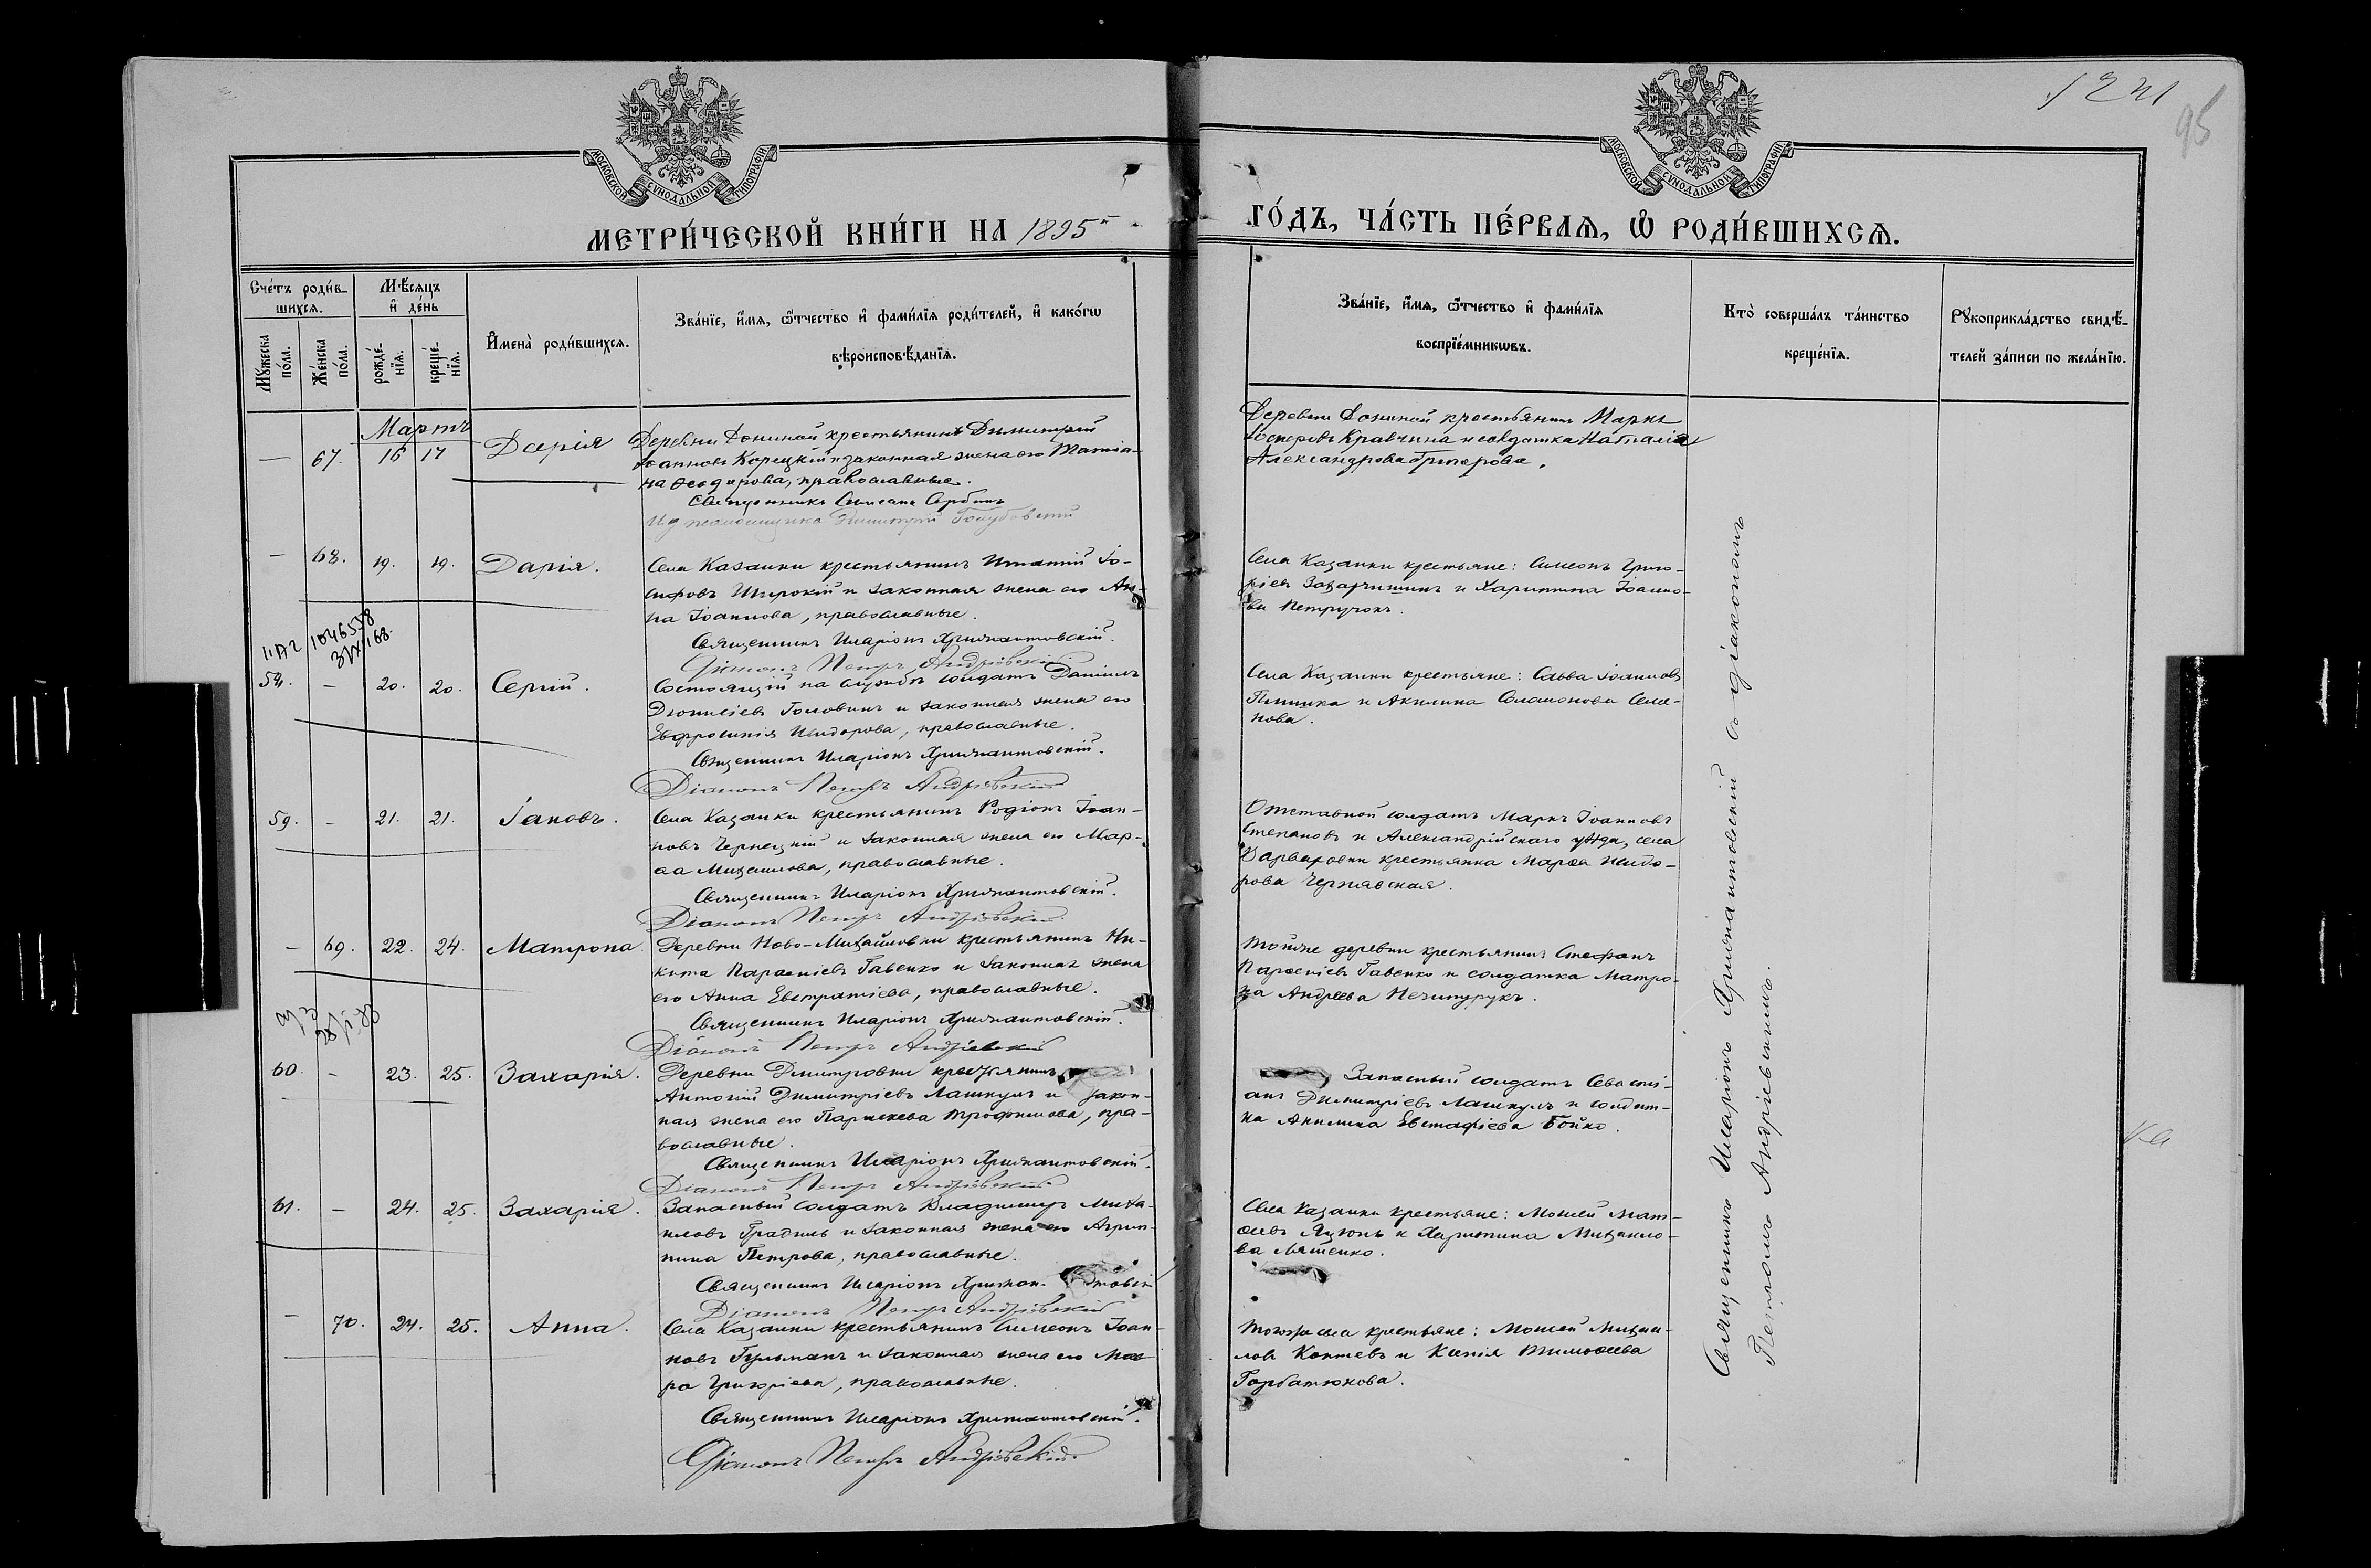 1241
95
МОСКОВСКОЙ СѴНОДАЛЬНОЙ ТИПОГРАФІИ
МОСКОВСКОЙ СѴНОДАЛЬНОЙ ТИПОГРАФІИ
МЕТРИ́ЧЕСКОЙ КНИ́ГИ НА 1895 ГО́ДЪ, ЧА́СТЬ ПЕ́РВАѦ, Ѡ РОДИ́ВШИХСѦ.
Сче́тъ роди́в-
шихсѧ.
Мꙋ́жеска по́ла.
Же́нска по́ла.
Мѣ́сѧцъ
и҆ де́нь
рожде́-
нїѧ.
креще́-
нїѧ.
И҆мена̀ роди́вшихсѧ.
Зва́нїе, и҆́мѧ, ѻ҆́тчество и҆ фами́лїѧ роди́телей, и҆ како́гѡ
вѣроисповѣ́данїѧ.
Зва́нїе, и҆́мѧ, ѻ҆́тчество и҆ фами́лїѧ
воспрїе́мникѡвъ.
Кто̀ соверша́лъ та́инство
креще́нїѧ.
Рꙋкоприкла́дство свидѣ́-
телей за́писи по жела́нїю.
Мартъ
— 67. 16 17 Дарія
Деревни крестьянинъ Димитрій
Іоанновъ Корецкій и законная жена его Татіа-
на Ѳеодорова, православные.
Священникъ
Димитрій Голубовскій
Деревни крестьянинъ Маркъ
Кравчина и солдатка Наталія
Александрова
— 68. 19. 19. Дарія.
Села Казанки крестьянинъ Игнатій Іо-
сифовъ Широкій и законная жена его Ан-
на Іоаннова, православные.
Священникъ Иларіонъ Хрисантовскій.
Діаконъ Петръ Андріевскій
Села Казанки крестьяне: Симеонъ Григо-
ріевъ и Харитина Іоанно-
ва Петручокъ.
1046538
58. — 20. 20. Сергій.
Состоящій на службѣ солдатъ Даніилъ
Діонисіевъ Головинъ и законная жена его
Евфросинія Исидорова, православные.
Священникъ Иларіонъ Хрисантовскій.
Діаконъ Петръ Андріевскій
Села Казанки крестьяне: Савва Іоанновъ
и Акилина Соломонова Семе-
нова.
59. — 21. 21. Іаковъ.
Села Казанки крестьянинъ Родіонъ Іоан-
новъ Чернецкій и законная жена его Мар-
ѳа Михаилова, православные.
Священникъ Иларіонъ Хрисантовскій.
Діаконъ Петръ Андріевскій
Отставной солдатъ Маркъ Іоанновъ
Степановъ и Александрійскаго уѣзда, села
Варваровки крестьянка Марѳа Исидо-
рова Чернявская.
— 69. 22. 24. Матрона.
Деревни Ново-Михайловки крестьянинъ Ни-
кита Парѳеніевъ Гавенко и законная жена
его Анна Евстратіева, православные.
Священникъ Иларіонъ Хрисантовскій.
Діаконъ Петръ Андріевскій
Тойже деревни крестьянинъ Стефанъ
Парѳеніевъ Гавенко и солдатка Матро-
на Андреева Нечипурукъ.
60. — 23. 25. Захарія.
Деревни Дмитровки крестьянинъ
Антоній Димитріевъ Лашкулъ и закон-
ная жена его Параскева Трофимова, пра-
вославные.
Священникъ Иларіонъ Хрисантовскій.
Діаконъ Петръ Андріевскій
Запасный солдатъ Севасті-
анъ Димитріевъ Лашкулъ и солдат-
ка Акилина Евстафіева Бойко.
61. — 24. 25. Захарія.
Запасный солдатъ Владиміръ Миха-
иловъ Градиль и законная жена его Агрип-
пина Петрова, православные.
Священникъ Иларіонъ Хрисантовскій
Діаконъ Петръ Андріевскій
Села Казанки крестьяне: Моисей Мат-
ѳеевъ Яцюкъ и Харитина Михаило-
ва Ляшенко.
— 70. 24. 25. Анна.
Села Казанки крестьянинъ Симеонъ Іоан-
новъ Гульманъ и законная жена его Мав-
ра Григоріева, православные.
Священникъ Иларіонъ Хрисантовскій.
Діаконъ Петръ Андріевскій
Тогожъ села крестьяне: Моисей Михаи-
ловъ Коптевъ и Ксенія Тимоѳеева
Горбатюкова.
Священникъ Иларіонъ Хрисантовскій съ діакономъ
Петромъ Андріевскимъ.